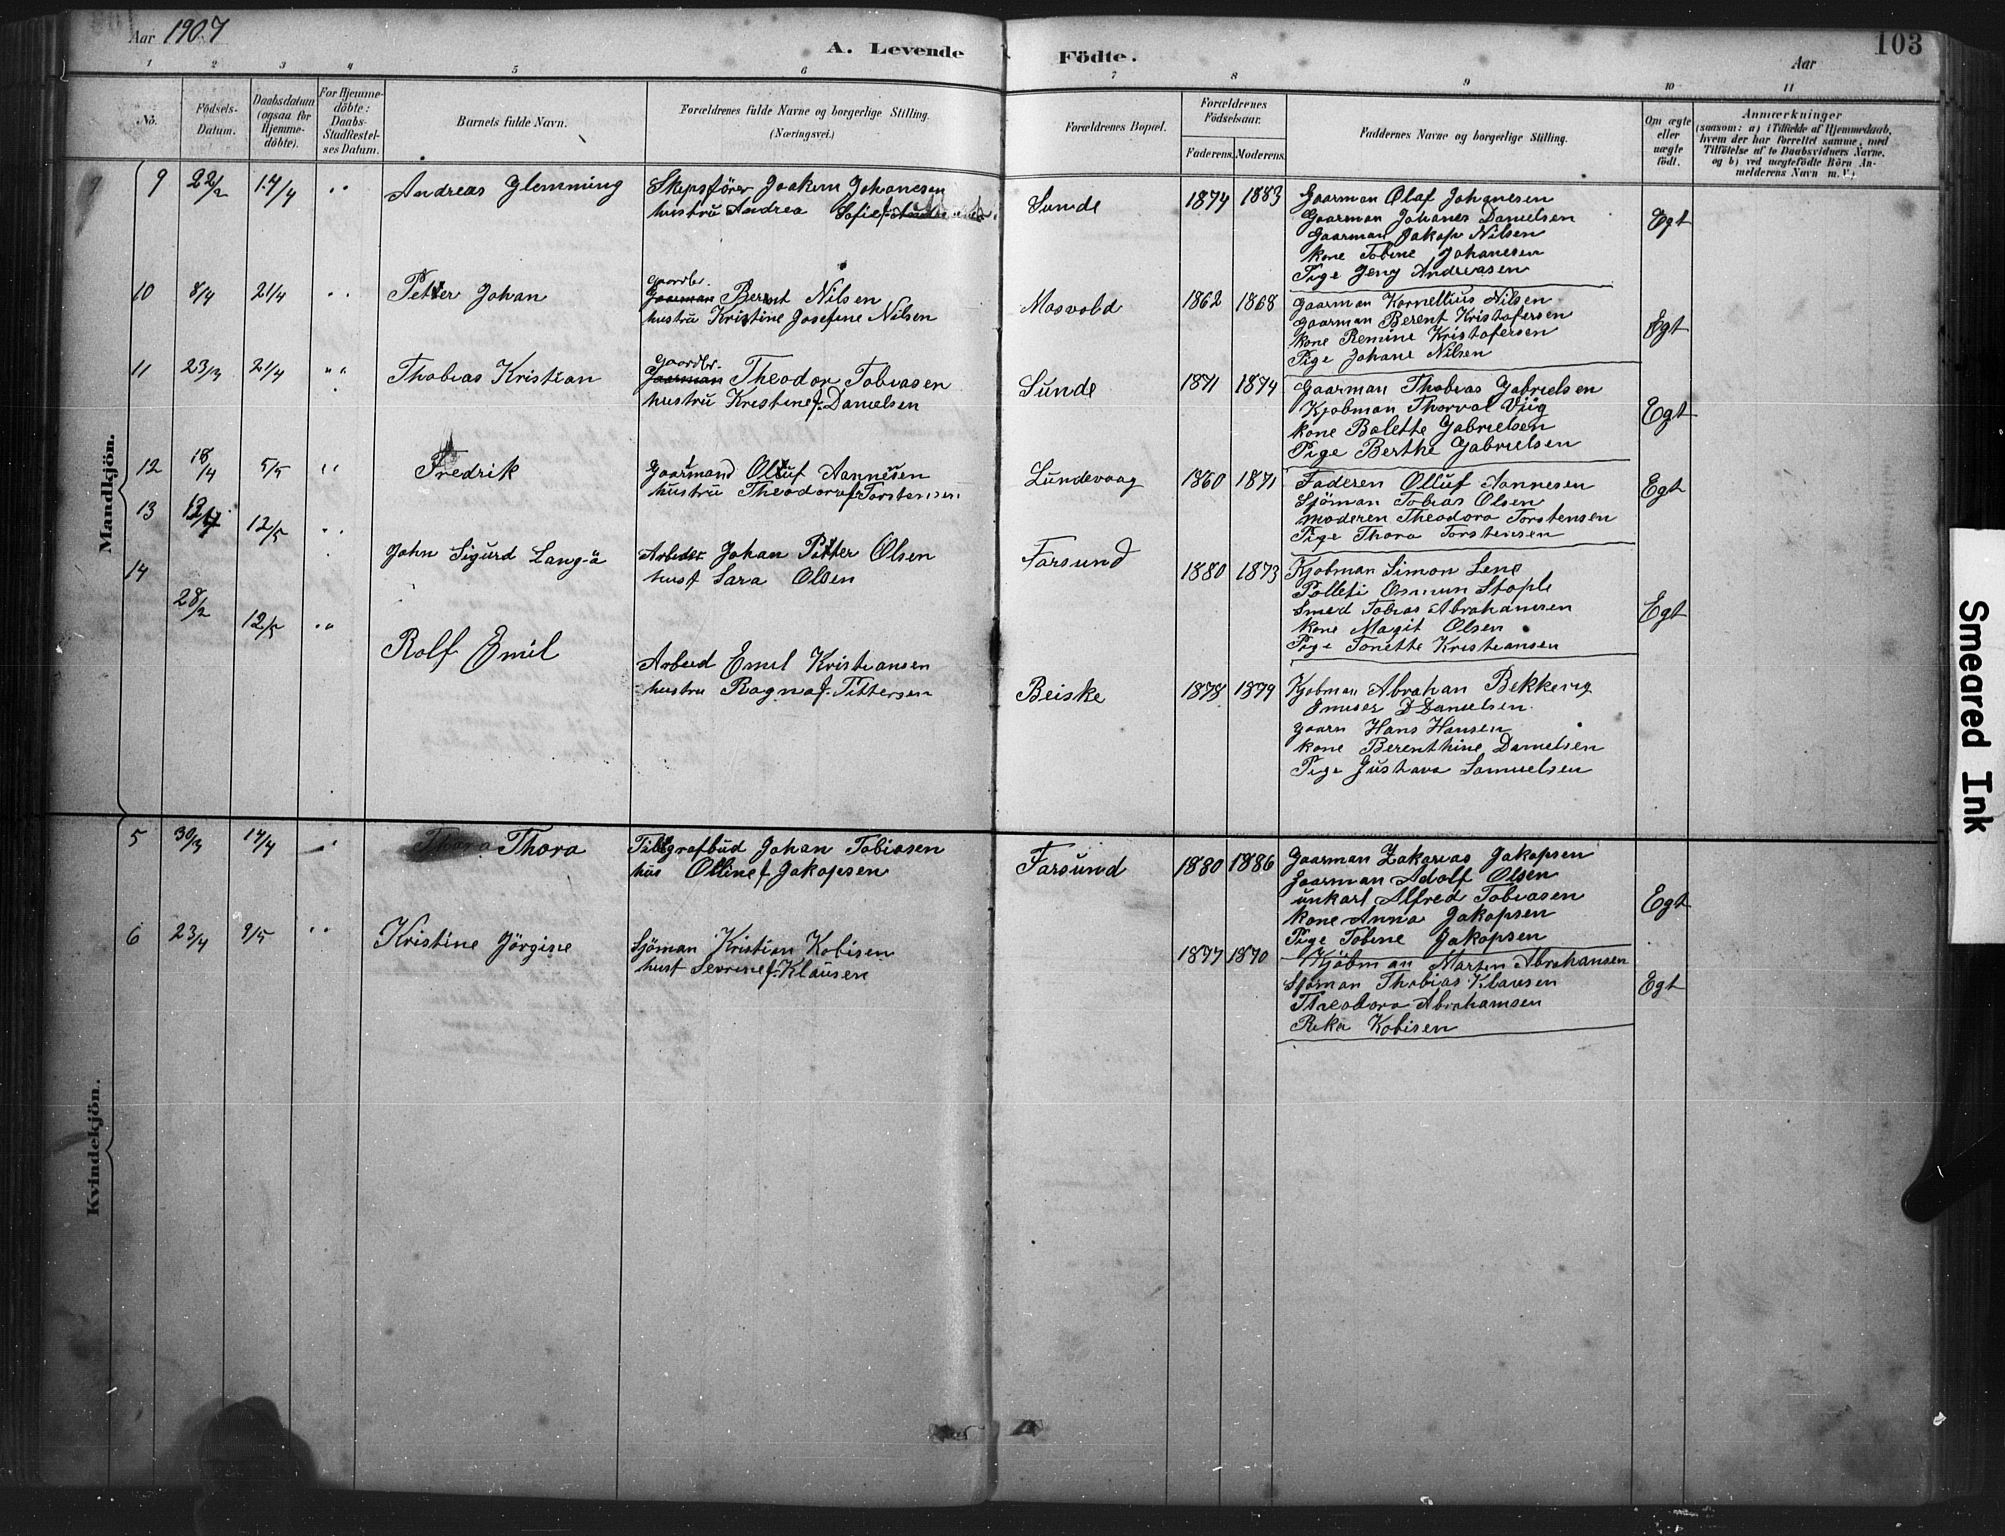 Aar 1907
A. Levende Födte.
Aar
103
1 2 3 4 5 6 7 8 9 10 11
No.
Födsels-Datum.
Daabsdatum (ogsaa for Hjemme-döbte).
For Hjemme-döbte: Daabs-Stadfæstel-ses Datum.
Barnets fulde Navn.
Forældrenes fulde Navne og borgerlige Stilling.
(Næringsvei.)
Forældrenes Bopæl.
Forældrenes Födselsaar.
Faderens. Moderens.
Faddernes Navne og borgerlige Stilling.
Om ægte eller uægte födt.
Anmærkninger
(saasom: a) i Tilfælde af Hjemmedaab, hvem der har forrettet samme, med Tilföielse af to Daabsvidners Navne, og b) ved uægtefödte Börn An-melderens Navn m. V.
Mandkjön.
9 22/2 14/4 " Andreas Glemming
Skipsförer Joakim Johanesen
hustru Andrea Sofie f.
Sunde 1874 1883
Gaarman Olaf Johanesen
Gaarman Johanes Danielsen
Gaarman Jakop Nilsen
Kone Tobine Johanesen
Pige Jeny Andreasen
Egt
10 8/4 21/4 " Petter Johan
Gaardbr.
Gaarman Berent Nilsen
hustru Kristine Josefine Nilsen
Mosvold 1862 1868
Gaarman Kornelius Nilsen
Gaarman Berent Kristofersen
Kone Remine Kristofersen
Pige Johane Nilsen
Egt
11 23/3 21/4 " Thobias Kristian
Gaardbr.
Gaarman Theodor Tobiasen
hustru Kristine f. Danielsen
Sunde 1871 1874
Gaarman Thobias Gabrielsen
Kjobman Thorval Vjig
Kone Bolette Gabrielsen
Pige Berthe Gabrielsen
Egt
12 18/4 5/5 " Fredrik
Gaarmand Olluf Aannesen
hustru Theodora f Torstensen
Lundevaag 1860 1871
Faderen Olluf Aannesen
Sjöman Tobias Olsen
Moderen Theodora Torstensen
Pige Thora Torstensen
Egt
13 12/5 " John Sigurd Lang-å
Arbeider Johan Pitter Olsen
hust Sara Olsen
Farsund 1880 1873
Kjobman Simon Lene
Polleti Osmun Stople
Smed Tobias Abrahamsen
Kone Magit Olsen
Pige Tonette Kristiansen
Egt
14 28/2 12/5 " Rolf Emil
Arbeid Emil Kristiansen
hustru Ragna f. Pittersen
Beiske 1878 1879
Kjobman Abrahan Bekkevig
D Danielsen
Gaarn Hans Hansen
Kone Berenthine Danielsen
Pige Gustava Samuelsen
Kvindekjön.
5 30/3 14/4 " Thora Thora
Tillgrafbud Johan Tobiasen
hus Olline f Jakopsen
Farsund 1880 1886
Gaarman Zakarias Jakopsen
Gaarman Adolf Olsen
unkarl Alfred Tobiasen
Kone Anna Jakopsen
Pige Tobine Jakopsen
Egt
6 23/4 9/5 " Kristine Jörgine
Sjöman Kristian Kobisen
hust Sevrine f. Klausen
1877 1870
Kjöbman Marten Abrahansen
Sjöman Thobias Klausen
Theodora Abrahamsen
Rika Kobisen
Egt
Smeared Ink